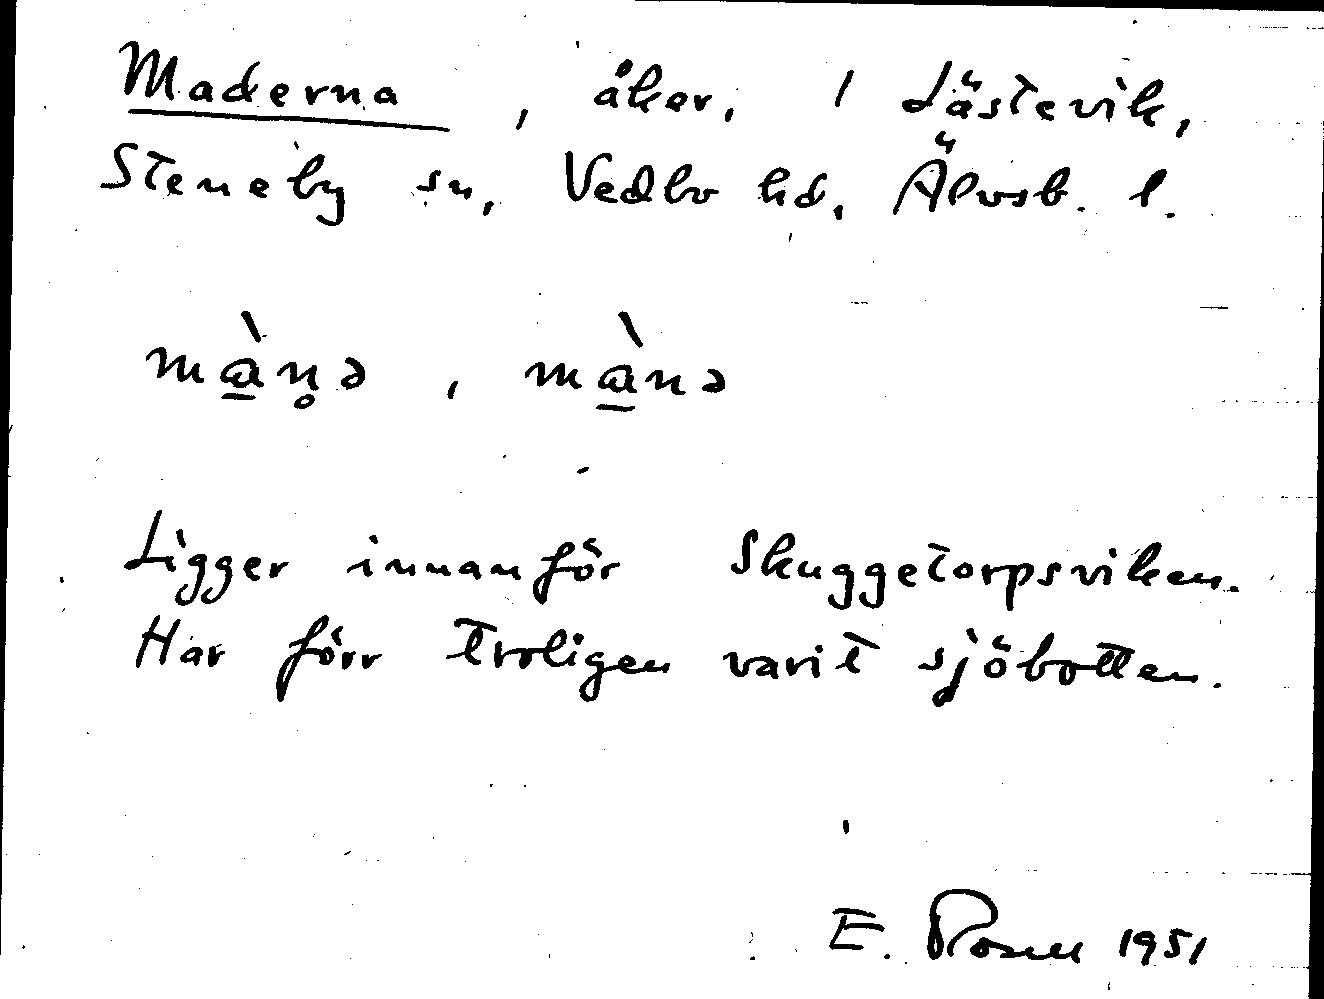 Maderna, åker, 1 Lästevik,
Steneby sn, Vedbo hd, Älvsb. l.
màn̥ə, mànə
Ligger innanför Skuggetorpsviken.
Har förr troligen varit sjöbotten.
E. Rosen 1951